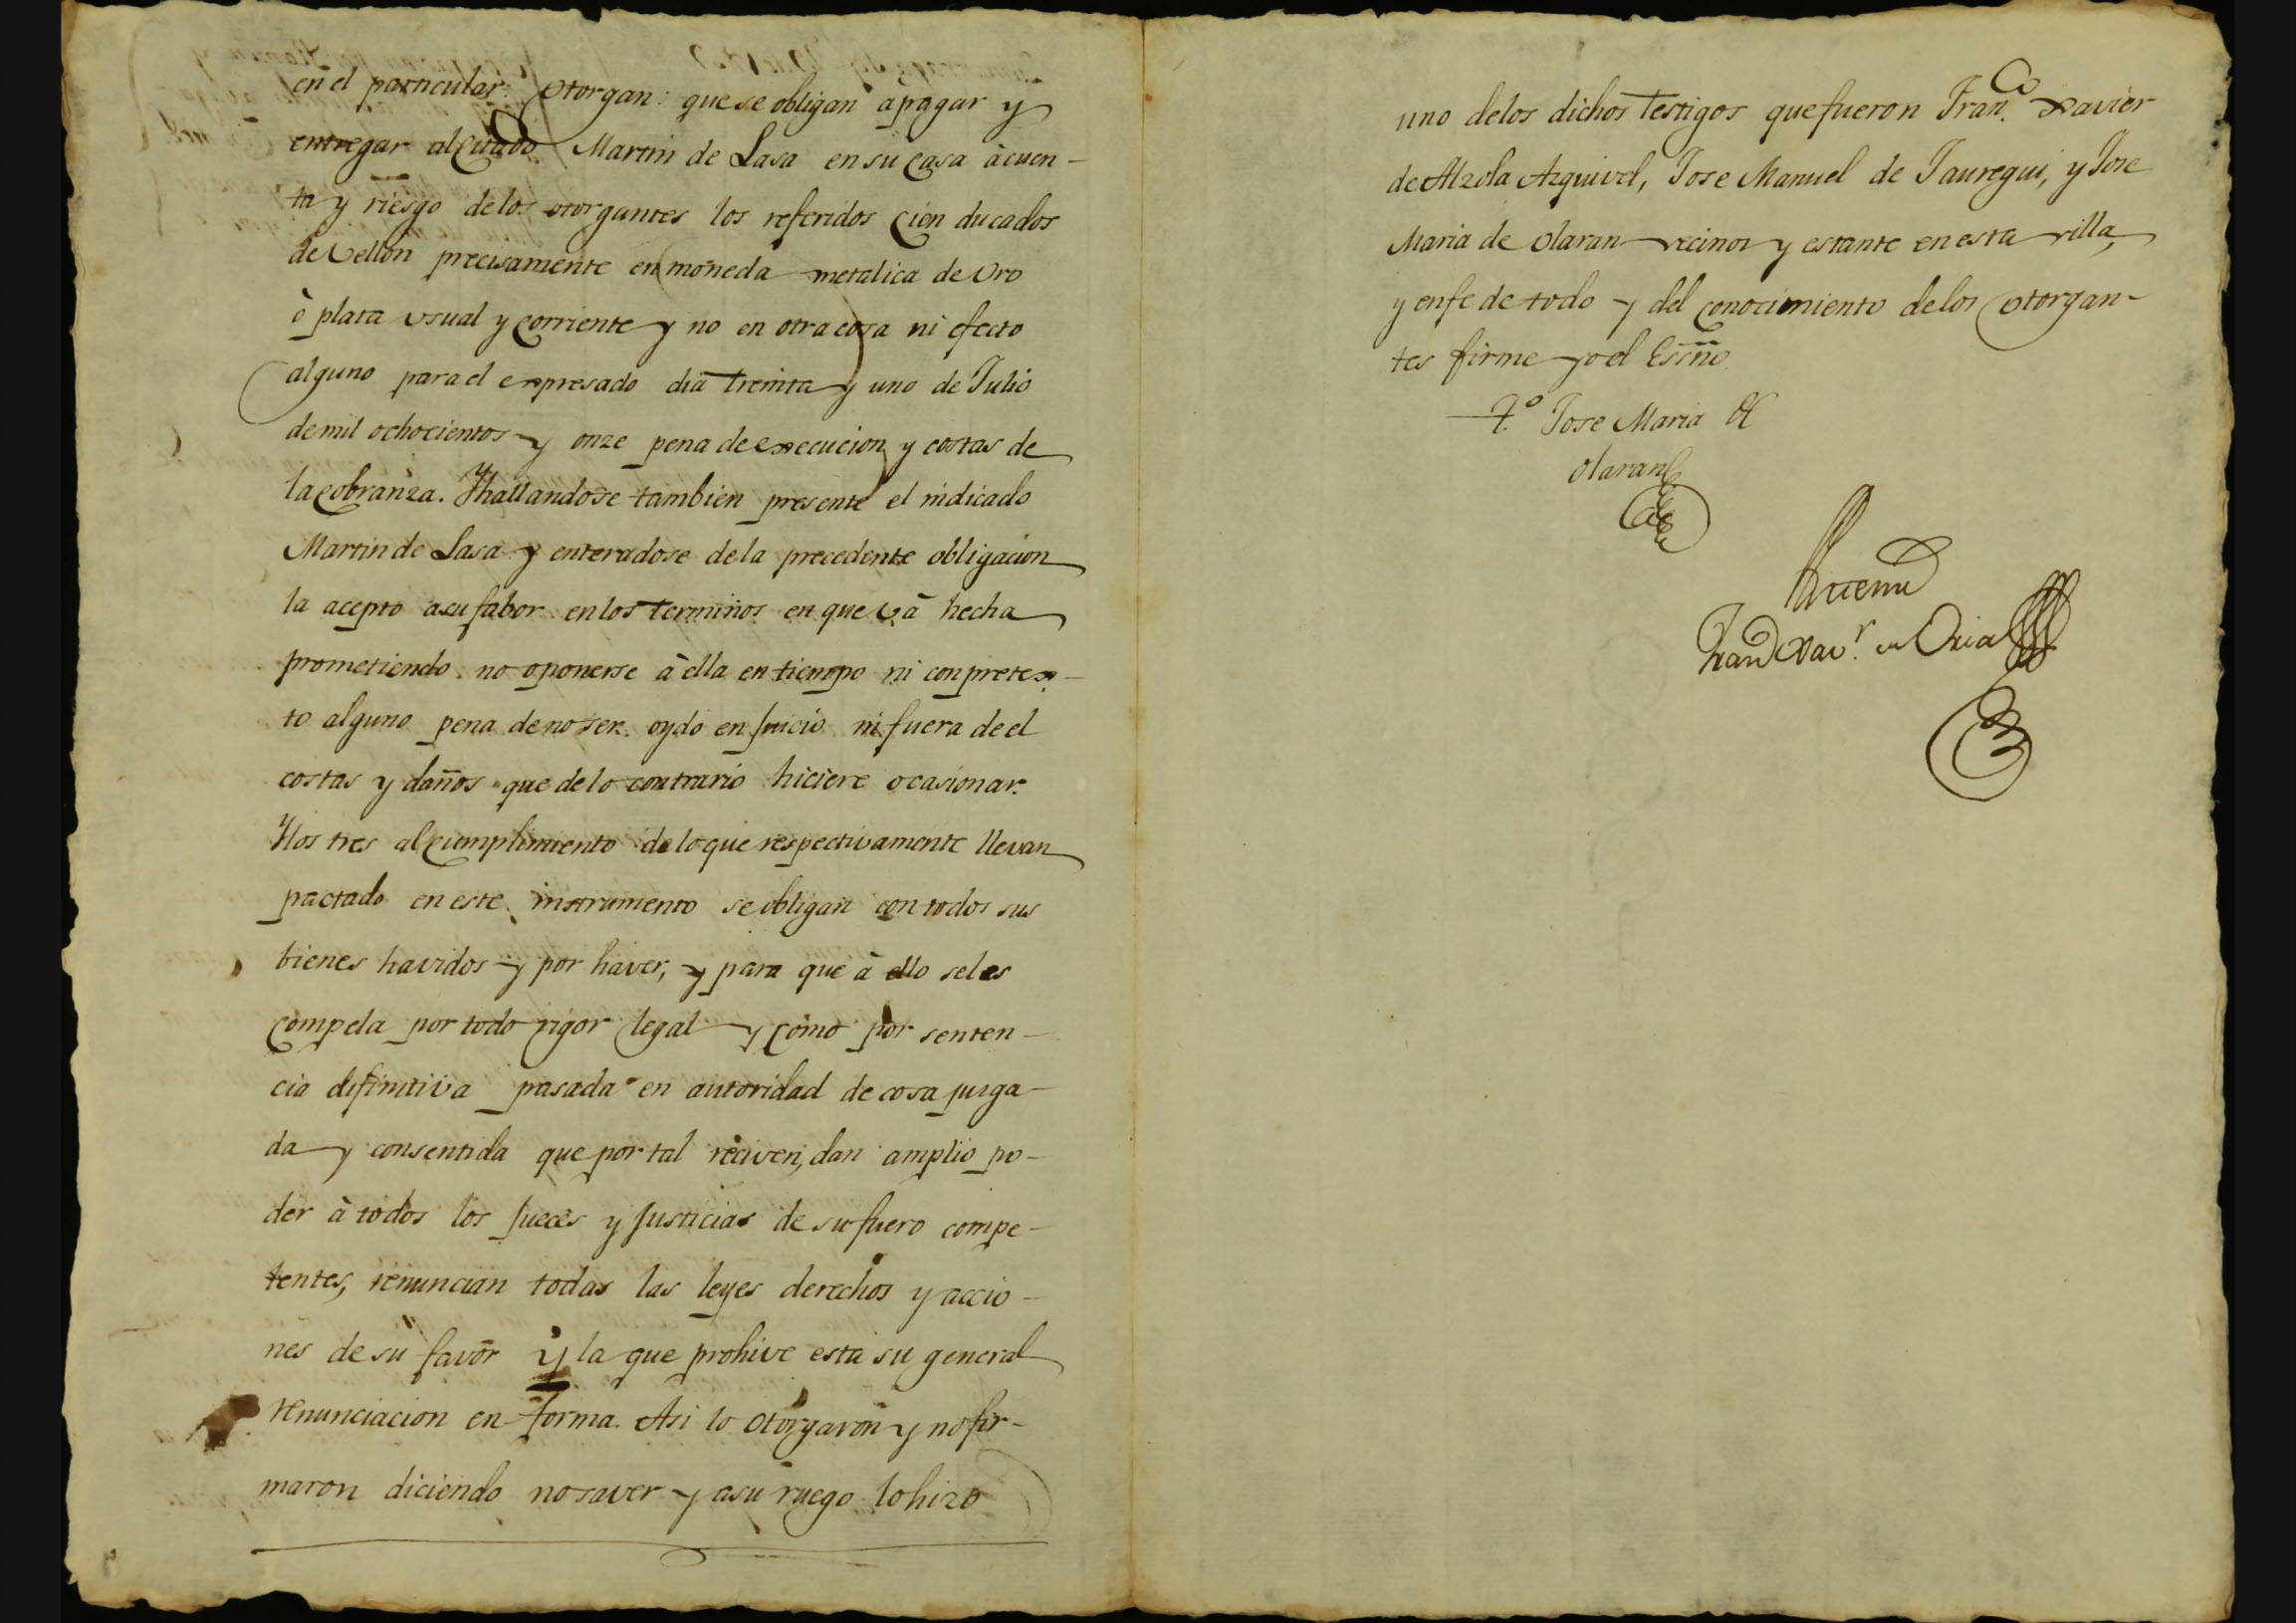 en el particular: Otorgan: que se obligan à pagar y
entregar al citado Martin de Lasa en su casa à cuen-
ta y riesgo de los otorgantes los referidos cien ducados
de vellon precisamente en moneda metalica de oro
ò plata usual y corriente y no en otra cosa ni efecto
alguno para el expresado dia treinta y uno de Julio
de mil ochocientos y onze pena de execucion y costas de
la cobranza. Y hallandose tambien presente el indicado
Martin de Lasa y enteradose de la precedente obligacion
la acepto a su fabor en los terminos en que và hecha
prometiendo no oponerse à ella en tiempo ni con pretex-
to alguno pena de no ser oydo en juicio ni fuera de el
costas y daños que de lo contrario hiciere ocasionar.
Y los tres al cumplimiento de lo que respectivamente llevan
pactado en este instrumento se obligan con todos sus
bienes havidos y por haver, y para que à ello se les
compela por todo rigor legal y como por senten-
cia difinitiva pasada en autoridad de cosa juzga-
da y consentida que por tal reciven, dan amplio po-
der à todos los jueces y justicias de su fuero compe-
tentes, renuncian todas las leyes derechos y accio-
nes de su favor y la que prohive esta su general
renunciacion en forma. Asi lo otorgaron y no fir-
maron diciendo no saver y a su ruego lo hizo
uno de los dichos testigos que fueron Fran.co Xavier
de Alzola Azquivel, Jose Manuel de Jauregui, y Jose
Maria de Olaran vecinos y estante en esta villa,
y en fe de todo y del conocimiento de los otorgan-
tes firme yo el Essno
T.o Jose Maria de
Olaran
Ante mi
Fran.co Xav.r de Oria